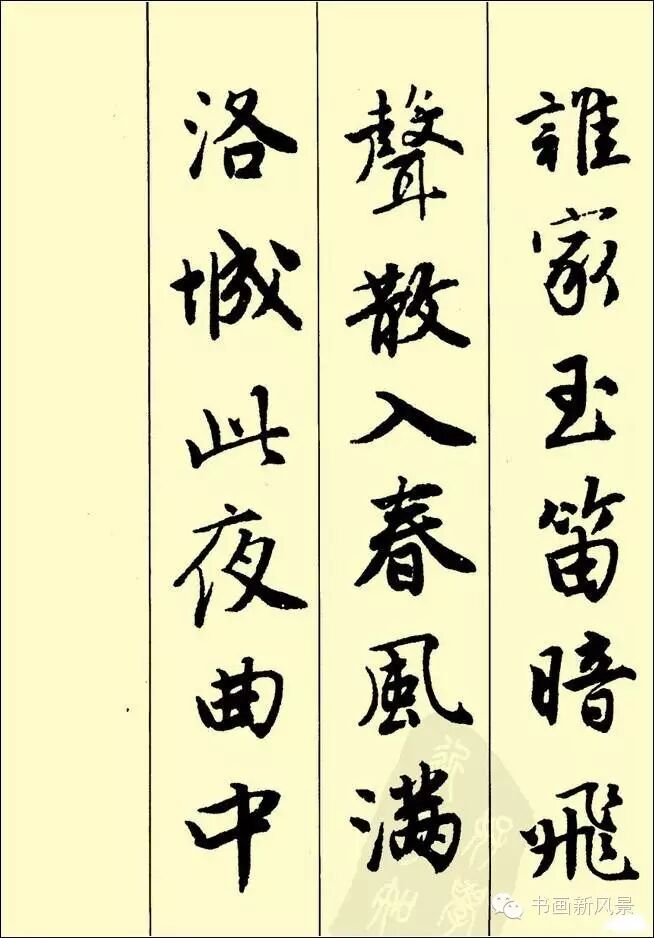 誰家玉笛暗飛
聲散入春風滿
洛城此夜曲中
书画新风景